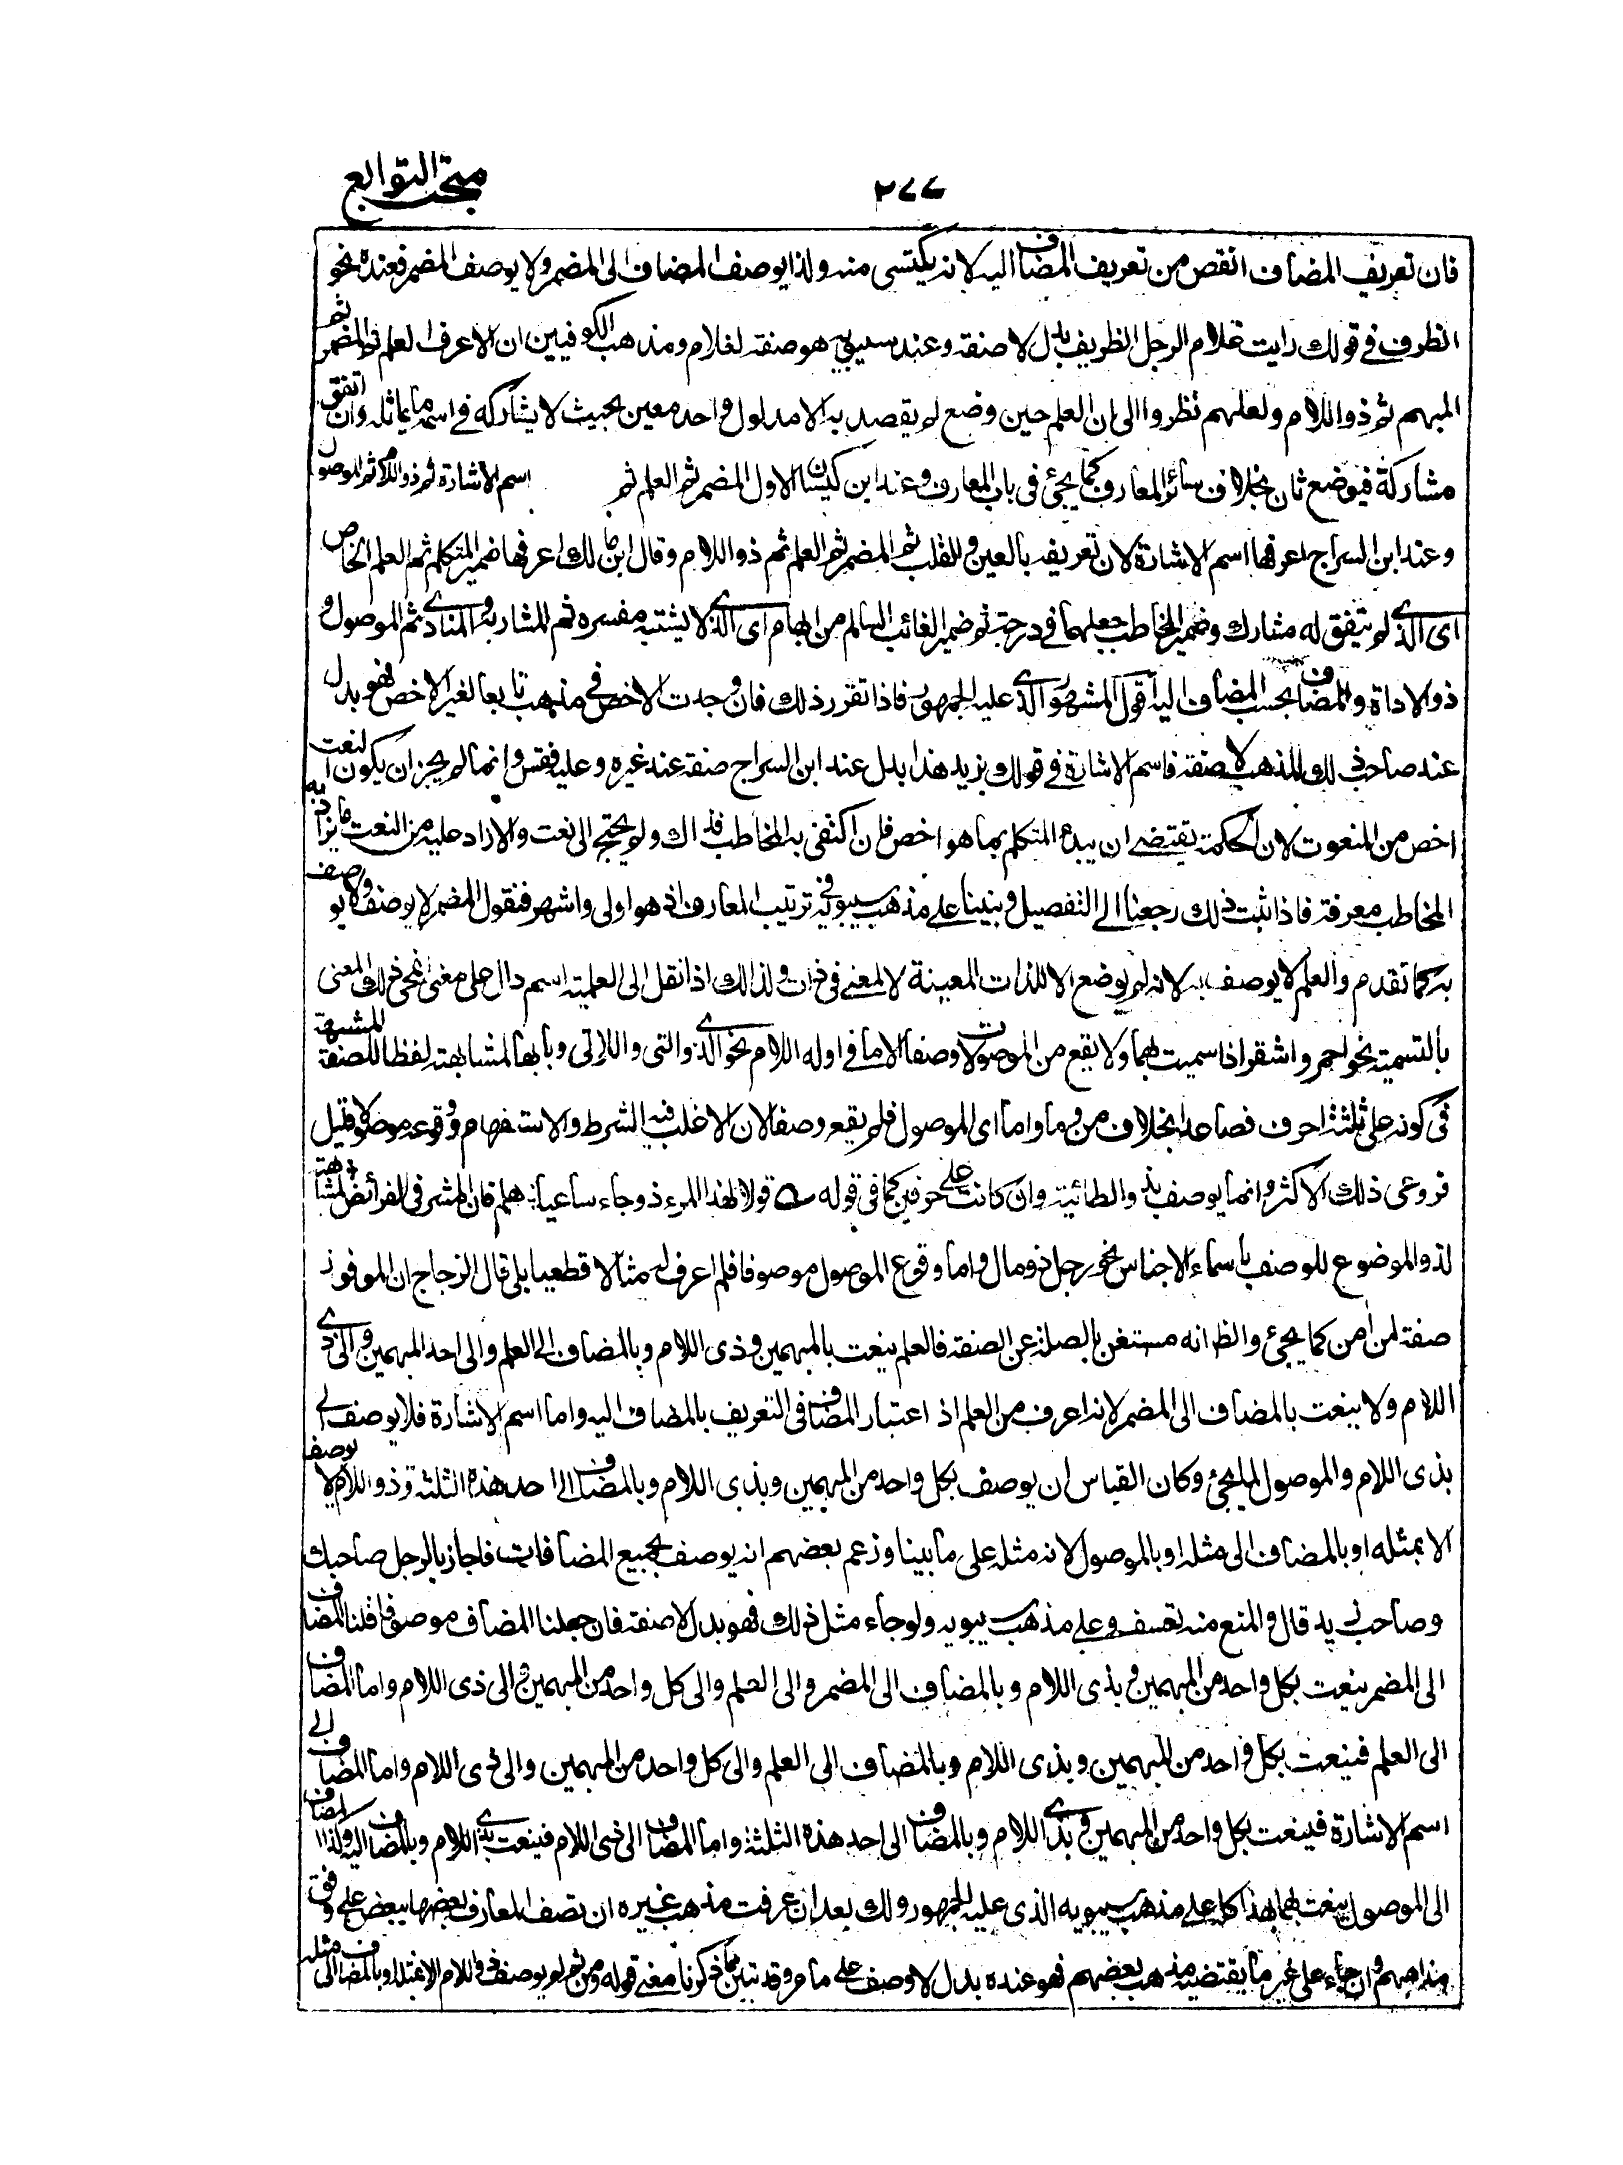 مبحث التوابع
٢٧٧
فان تعريف المضاف انقص من تعريف المضاف اليه لانه يكتسى منه ولذا يوصف المضاف الى المضمر ولا يوصف المضمر فعنده نحو
الظرف فى قولك رايت غلام الرجل الظريف بدل لا صفة وعند سيبويه هو صفة لغلام ومذهب الكوفيين ان الاعرف العلم ثم المضمر ثم
المبهم ثم ذو اللام ولعلهم نظروا الى ان العلم حين وضع لم يقصد به الا مدلول واحد معين بحيث لا يشاركه فى اسمه ما يماثله وان اتفق
مشاركة فبوضع ثان بخلاف سائر المعارف كما يجئ فى باب المعارف وعند ابن كيسان الاول المضمر ثم العلم ثم اسم الاشارة ثم ذو اللام ثم الموصول
وعند ابن السراج اعرفها اسم الاشارة لان تعريفه بالعين والقلب ثم المضمر ثم العلم ثم ذو اللام وقال ابن مالك اعرفها ضمير المتكلم ثم العلم الخاص
اى الذى لم يتفق له مشارك وضمير المخاطب جعلهما فى درجة ثم ضمير الغائب السالم من ابهام اى الذى لا يشتبه مفسره ثم المشار به والمنادى ثم الموصول و
ذو الاداة والمضاف بحسب المضاف اليه اقول المشهور الذى عليه الجمهور فاذا تقرر ذلك فان وجدت الاخص فى مذهب تابعا لغير الاخص فهو بدل
عند صاحب ذلك المذهب لا صفة فاسم الاشارة فى قولك بزيد هذا بدل عند ابن السراج صفة عند غيره وعليه فقس وانما لم يجز ان يكون النعت
اخص من المنعوت لان الحكمة يقتضى ان يبدء المتكلم بما هو اخص فان اكتفى به المخاطب فذاك ولم يحتج الى نعت والا زاد عليه من النعت ما يزداد به
المخاطب معرفة فاذا ثبت ذلك رجعنا الى التفصيل وبنينا على مذهب سيبويه فى ترتيب المعارف اذ هو اولى واشهر فنقول المضمر لا يوصف ولا يوصف
به كما تقدم والعلم لا يوصف به لانه لم يوضع الا للذات المعينة لا لمعنى فى ذات ولذلك اذا نقل الى العلمية اسم دال على معنى انمحى ذلك المعنى
بالتسمية نحو احمر واشقر اذا سميت بهما ولا يقع من الموصولات وصفا الا ما فى اوله اللام نحو الذى والتى واللاتى وبابها لمشابهته لفظا للصفة المشبهة
فى كونه على ثلثة احرف فصاعدا بخلاف من وما واما اى الموصول فلم يقع وصفا لان الاغلب فيه الشرط والاستفهام ووقوعه موصولا قليل
فروعى ذلك الاكثر وانما يوصف بذو الطائية وان كانت على حرفين كما فى قوله قولا لهذا المرء ذو جاء ساعيا هلم فان المشرفى الفرائض لمشابهته
لذو الموضوع للوصف باسماء الاجناس نحو رجل ذو مال واما وقوع الموصول موصوفا فلم اعرف له مثالا قطعيا بلى قال الزجاج ان الموفون
صفة لمن امن كما يجئ والظ انه مستغن بالصلة عن الصفة فالعلم ينعت بالمبهمين وذى اللام وبالمضاف الى العلم والى احد المبهمين والى ذى
اللام ولا ينعت بالمضاف الى المضمر لانه اعرف من العلم اذ اعتبار المضاف فى التعريف بالمضاف اليه واما اسم الاشارة فلا يوصف الا
بذى اللام والموصول لما يجئ وكان القياس ان يوصف بكل واحد من المبهمين وبذى اللام وبالمضاف الى احد هذه الثلثة وذو اللام لا يوصف
الا بمثله او بالمضاف الى مثله او بالموصول لانه مثله على ما بينا وزعم بعضهم انه يوصف بجميع المضافات فاجاز بالرجل صاحبك
وصاحب زيد قال والمنع منه تعسف وعلى مذهب سيبويه ولو جاء مثل ذلك فهو بدل لا صفة فان جعلنا المضاف موصوفا قلنا المضاف
الى المضمر ينعت بكل واحد من المبهمين وبذى اللام وبالمضاف الى المضمر والى العلم والى كل واحد من المبهمين والى ذى اللام واما المضاف
الى العلم فينعت بكل واحد من المبهمين وبذى اللام وبالمضاف الى العلم والى كل واحد من المبهمين والى ذى اللام واما المضاف الى
اسم الاشارة فينعت بكل واحد من المبهمين وبذى اللام وبالمضاف الى احد هذه الثلثة واما المضاف الى ذى اللام فينعت بذى اللام وبالمضاف اليه وكذا المضاف
الى الموصول ينعت بهما هذا كله على مذهب سيبويه الذى عليه الجمهور ولك بعد ان عرفت مذهب غيره ان تصف المعارف بعضها ببعض على وفق
مذاهبهم وان جاء على غير ما يقتضيه مذهب بعضهم فهو عنده بدل لا وصف على ما مر وقد تبين بما ذكرنا معنى قوله ومن ثم لم يوصف ذو اللام الا بمثله او بالمضاف الى مثله